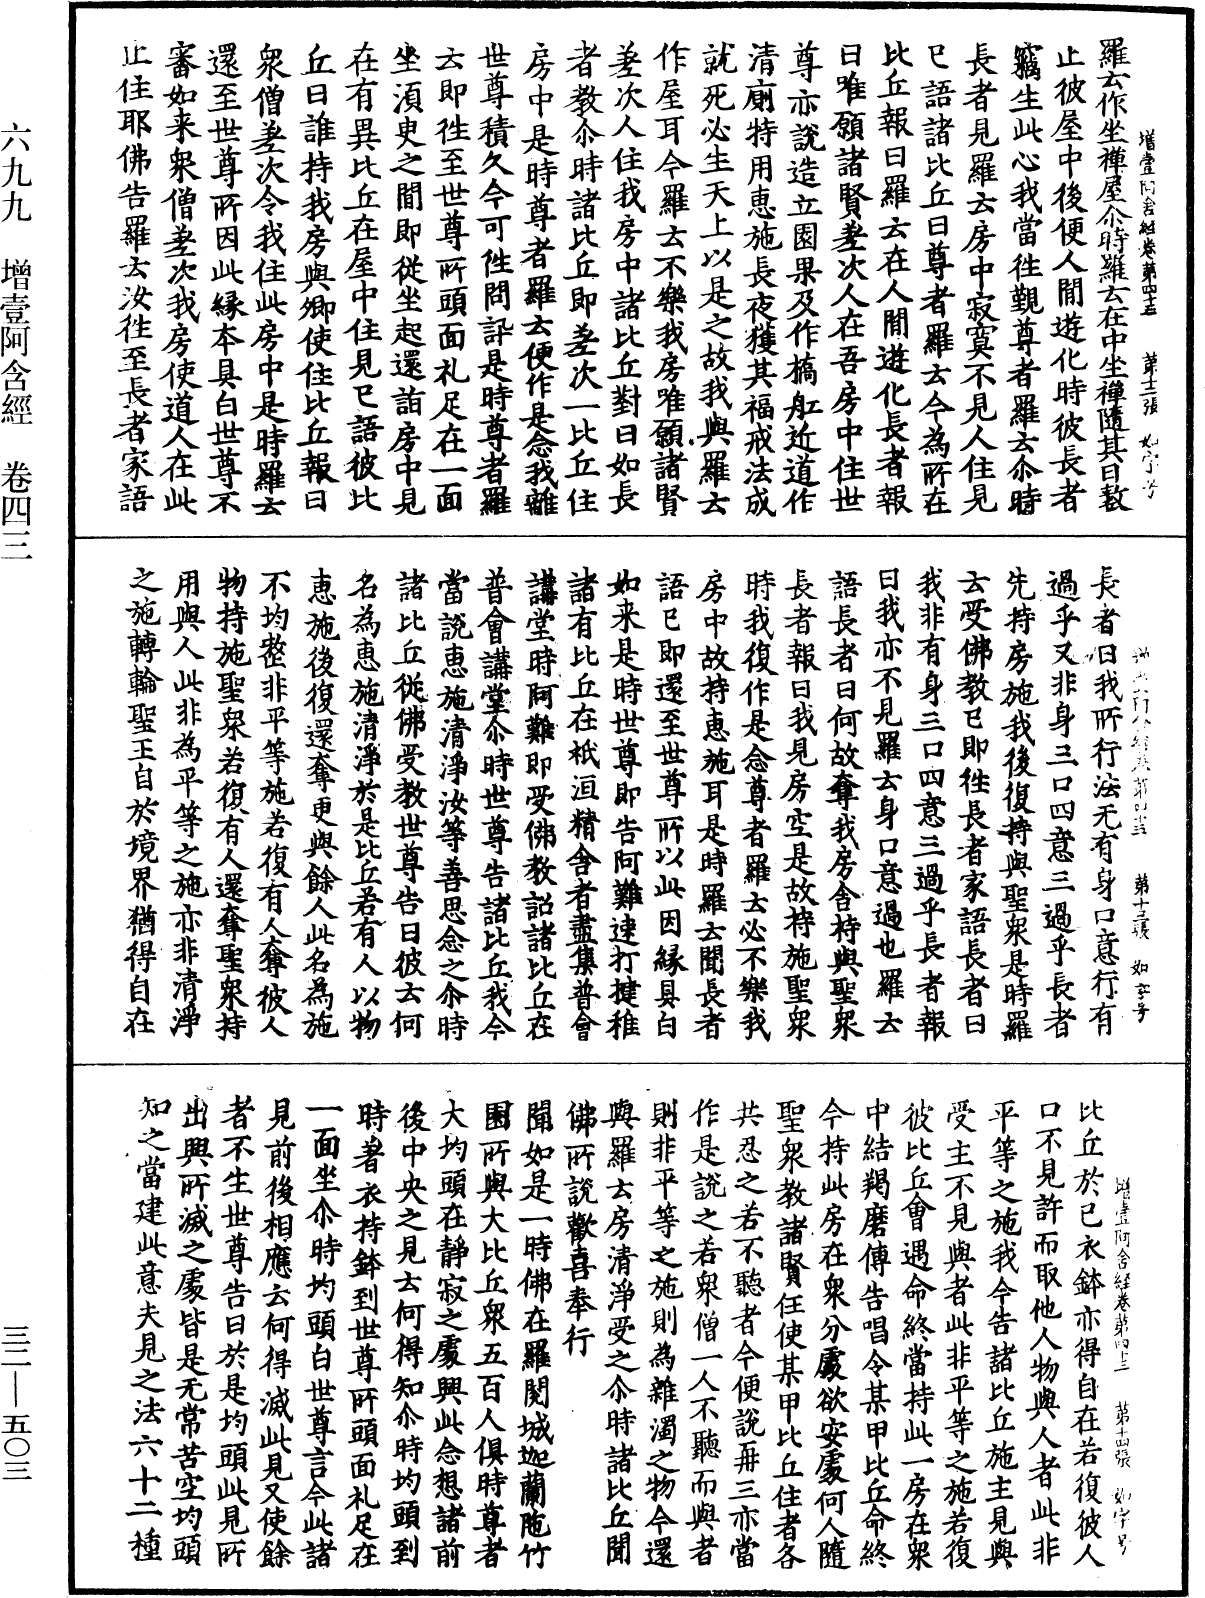 羅云作坐禪屋尒時羅云在中坐禪隨其日數
止彼屋中後便人閒遊化時彼長者
竊生此心我當往覲尊者羅云尒時
長者見羅云房中寂寞不見人住見
已語諸比丘曰尊者羅云今為所在
比丘報曰羅云在人閒遊化長者報
曰唯願諸賢差次人在吾房中住世
尊亦說造立園果及作橋舡近道作
清廁特用惠施長夜獲其福戒法成
就死必生天上以是之故我與羅云
作屋耳今羅云不樂我房唯願諸賢
差次人住我房中諸比丘對曰如長
者教尒時諸比丘即差次一比丘住
房中是時尊者羅云便作是念我離
世尊積久今可往問訊是時尊者羅
云即往至世尊所頭面礼足在一面
坐湏臾之閒即從坐起還詣房中見
在有異比丘在屋中住見已語彼比
丘曰誰持我房與卿使住比丘報曰
衆僧差次令我住此房中是時羅云
還至世尊所因此縁本具白世尊不
審如来衆僧差次我房使道人在此
止住耶佛告羅云汝往至長者家語
長者曰我所行法无有身口意行有
過乎又非身三口四意三過乎長者
先持房施我後復持與聖衆是時羅
云受佛教已即往長者家語長者曰
我非有身三口四意三過乎長者報
曰我亦不見羅云身口意過也羅云
語長者曰何故奪我房舍持與聖衆
長者報曰我見房空是故持施聖衆
時我復作是念尊者羅云必不樂我
房中故持惠施耳是時羅云聞長者
語已即還至世尊所以此因縁具白
如来是時世尊即告阿難速打揵稚
諸有比丘在祇洹精舍者盡集普會
講堂時阿難即受佛教詔諸比丘在
普會講堂尒時世尊告諸比丘我今
當說惠施清淨汝等善思念之尒時
諸比丘從佛受教世尊告曰彼云何
名為惠施清淨於是比丘若有人以物
惠施後復還奪更與餘人此名為施
不均整非平等施若復有人奪彼人
物持施聖衆若復有人還奪聖衆持
用與人此非為平等之施亦非清淨
之施轉輪聖王自於境界猶得自在
比丘於己衣鉢亦得自在若復彼人
口不見許而取他人物與人者此非
平等之施我今告諸比丘施主見與
受主不見與者此非平等之施若復
彼比丘會遇命終當持此一房在衆
中結羯磨傳告唱令某甲比丘命終
今持此房在衆分處欲安處何人隨
聖衆教諸賢任使某甲比丘住者各
共忍之若不聽者今便說再三亦當
作是說之若衆僧一人不聽而與者
則非平等之施則為雜濁之物今還
與羅云房清淨受之尒時諸比丘聞
佛所說歡喜奉行
聞如是一時佛在羅閱城迦蘭陁竹
園所與大比丘衆五百人俱時尊者
大均頭在靜寂之處興此念想諸前
後中央之見云何得知尒時均頭到
時著衣持鉢到世尊所頭面礼足在
一面坐尒時均頭白世尊言今此諸
見前後相應云何得滅此見又使餘
者不生世尊告曰於是均頭此見所
出興所滅之處皆是无常苦空均頭
知之當建此意夫見之法六十二種
增壹阿含經卷第四十三 第十三張 如字号
增壹阿含經卷第四十三 第十四張
六九九 增壹阿含經 卷四三
三二—五〇三